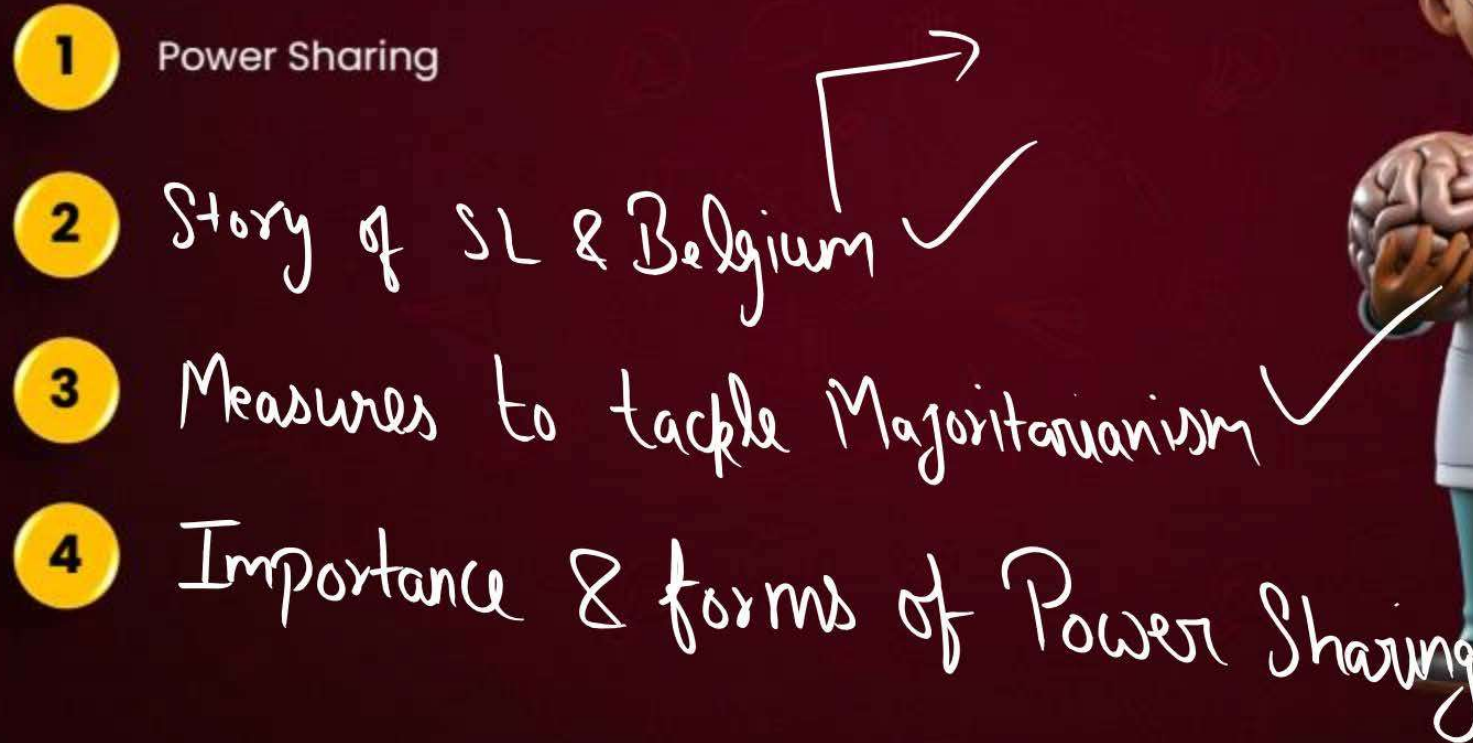 1 Power Sharing
2 Story of SL & Belgium
3 Measures to tackle Majoritarianism
4 Importance & forms of Power Sharing